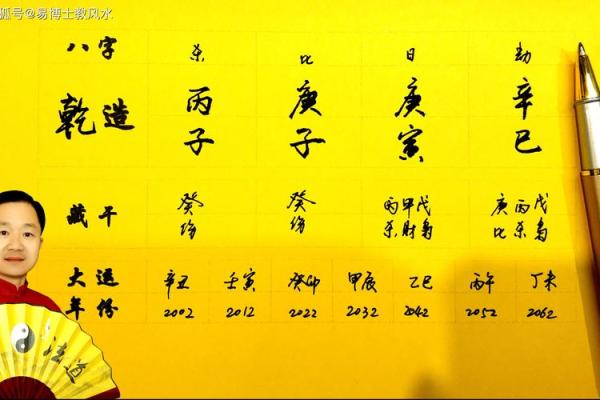 狐号@易博士教风水
八字 杀 比 日 劫
乾造 丙子 庚子 庚寅 辛巳
藏干 癸伤 癸伤 丙杀 甲财 戊枭 庚比 丙杀 戊枭
大运 辛丑 壬寅 癸卯 甲辰 乙巳 丙午 丁未
年份 2002 2012 2022 2032 2042 2052 2062
道